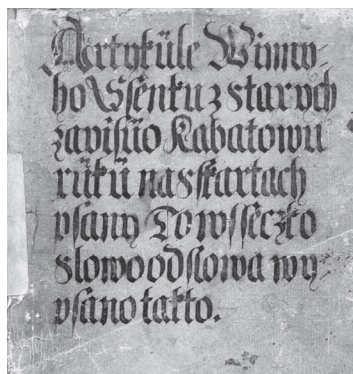 Artykule Winny-
ho Ssenku z starych
zapisuo Kabatowu
rukú na sskartach
psany To wssečzko
slowo od slowa wy-
psano takto.